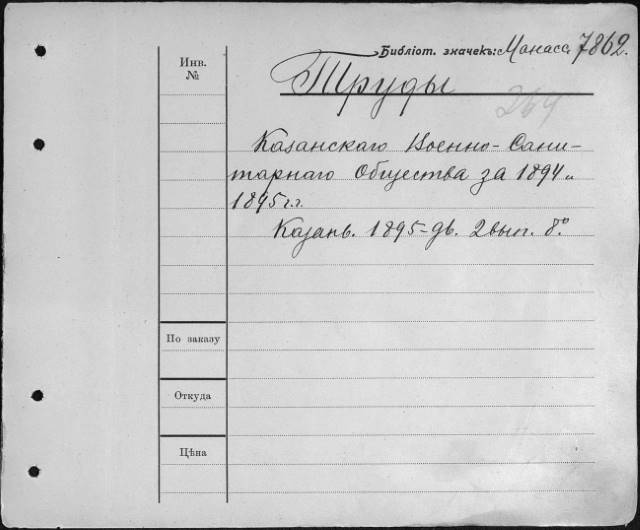 Библіот. значекъ: Манасс. 7862.
Инв.
№
Труды
264
Казанскаго Военно-Сани-
тарнаго Общества за 1894 и
1895 г.г.
Казань. 1895 2 вып. 8°
По заказу
Откуда
Цѣна